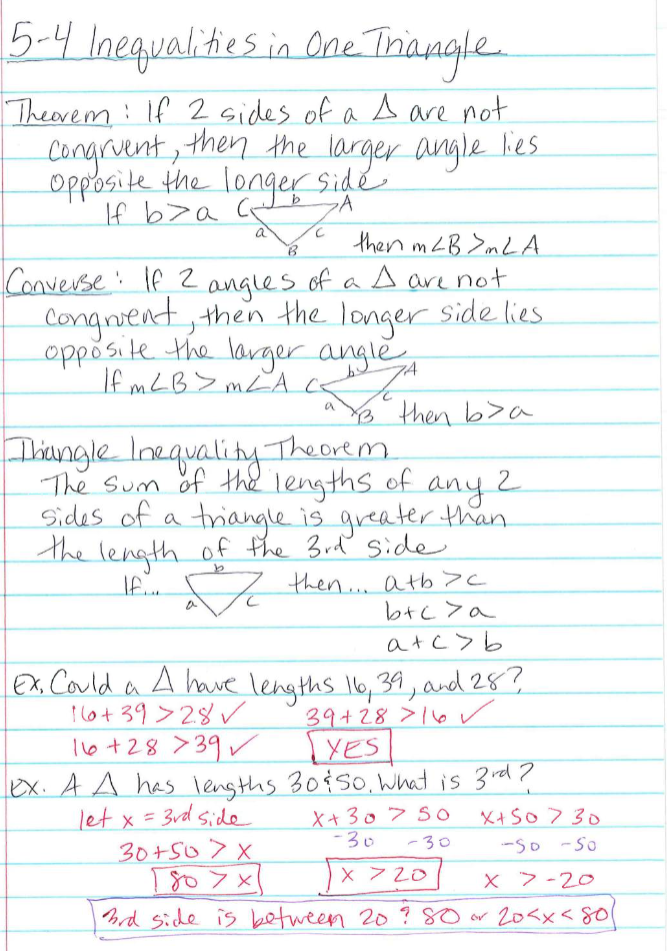 5-4 Inequalities in One Triangle
Theorem : If 2 sides of a △ are not
congruent, then the larger angle lies
opposite the longer side.
If b>a C b A
a c
B then m∠B>m∠A
Converse : If 2 angles of a △ are not
congruent, then the longer side lies
opposite the larger angle.
If m∠B > m∠A C b A
a c
B then b>a
Triangle Inequality Theorem
The sum of the lengths of any 2
sides of a triangle is greater than
the length of the 3rd side
If... b then... a+b >c
a c b+c >a
a+c>b
Ex. Could a △ have lengths 16, 39, and 28?
16+39 >28 ✓ 39+28 >16 ✓
16 +28 >39 ✓ YES
Ex. A △ has lengths 30 & 50. What is 3rd?
let x = 3rd side x+30 > 50 x+50 > 30
30+50 > x -30 -30 -50 -50
80 > x x > 20 x > -20
3rd side is between 20 & 80 or 20<x<80